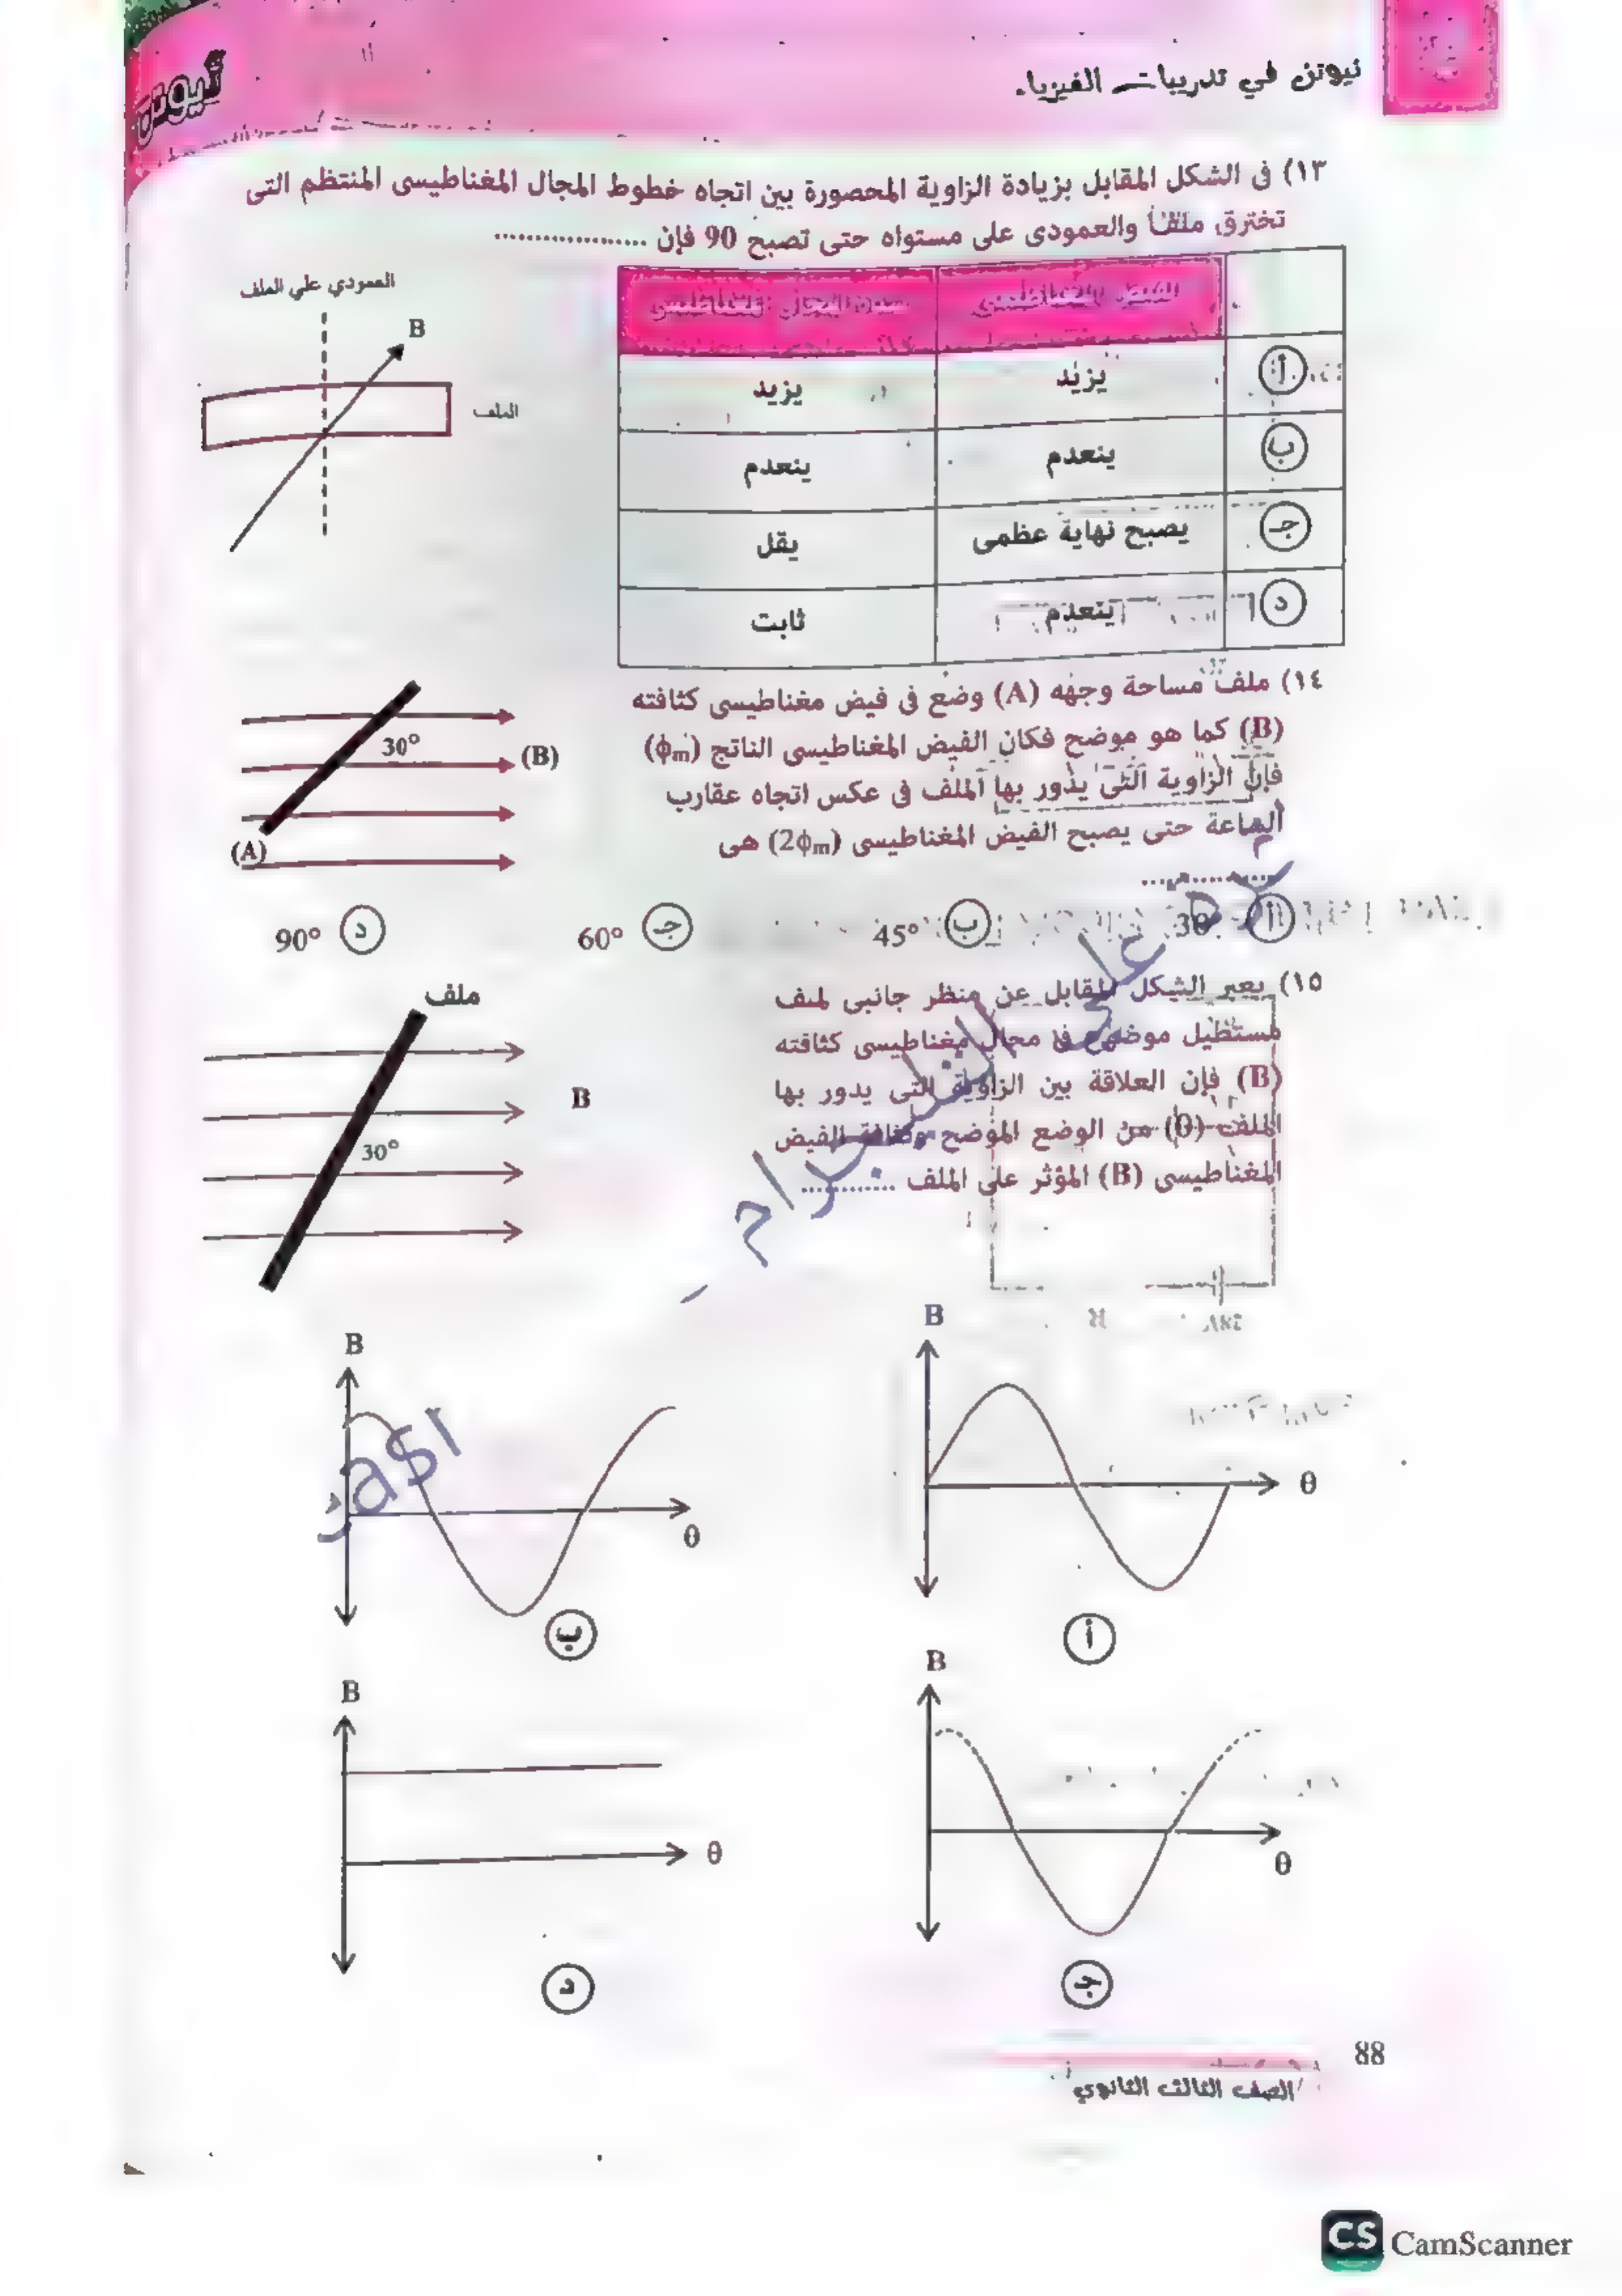 نيوتن في تدريبات الفيزياء.
نيوتن
١٣) فى الشكل المقابل بزيادة الزاوية المحصورة بين اتجاه خطوط المجال المغناطيسى المنتظم التى
تخترق ملفا والعمودى على مستواه حتى تصبح 90 فإن ...................
العمودي علي الملف
B
الملف
الفيض المغناطيسى
المجال المغناطيسى
أ
يزيد
يزيد
ب
ينعدم
ينعدم
جـ
يصبح نهاية عظمى
يقل
د
ينعدم
ثابت
١٤) ملف مساحة وجهه (A) وضع فى فيض مغناطيسى كثافته
(B) كما هو موضح فكان الفيض المغناطيسى الناتج (ϕm)
فإن الزاوية التى يدور بها الملف فى عكس اتجاه عقارب
الساعة حتى يصبح الفيض المغناطيسى (2ϕm) هى
................
30°
(B)
(A)
أ 30°
ب 45°
جـ 60°
د 90°
١٥) يعبر الشكل المقابل عن منظر جانبى لملف
مستطيل موضوع فى مجال مغناطيسى كثافته
(B) فإن العلاقة بين الزاوية التى يدور بها
الملف (θ) من الوضع الموضح وكثافة الفيض
المغناطيسى (B) المؤثر على الملف ............
ملف
B
30°
B
θ
أ
B
θ
ب
B
θ
جـ
B
θ
د
88
الصف الثالث الثانوي
CS CamScanner